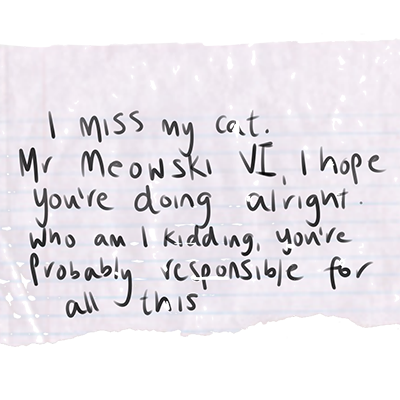 I miss my cat.
Mr Meowski VI, I hope
you're doing alright.
Who am I kidding, you're
probably responsible for
all this